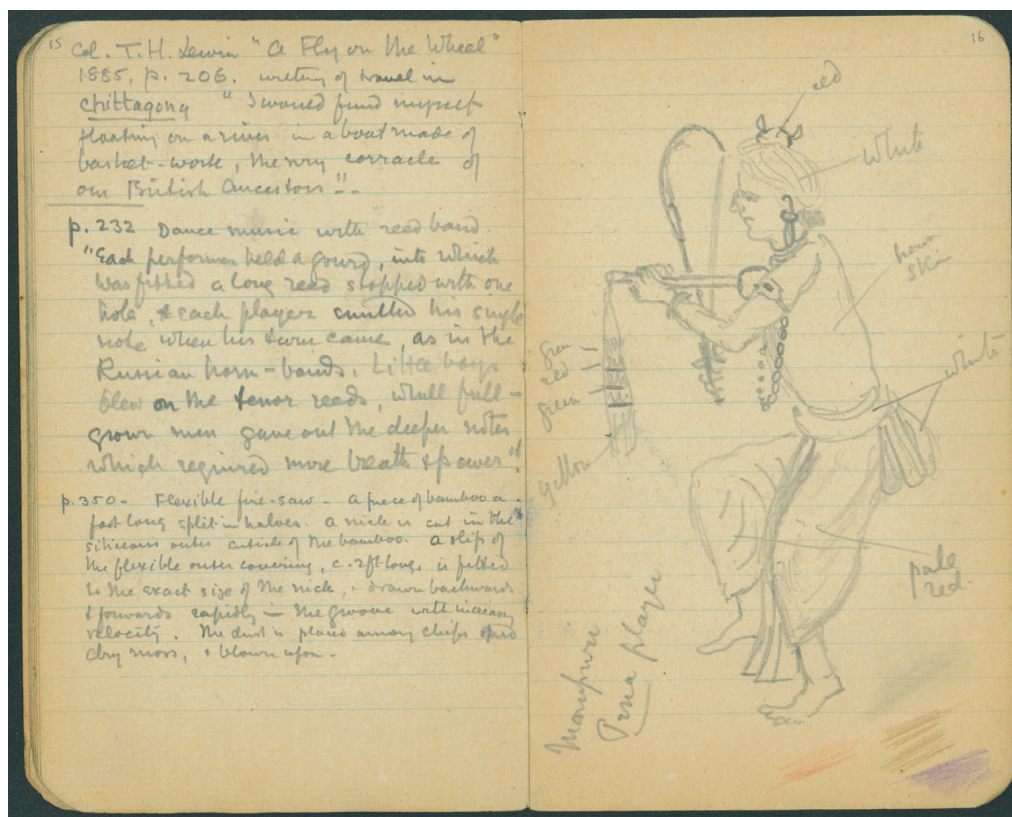 15
Col. T.H. Lewin "A Fly on the Wheel"
1885, p. 206. writing of travel in
Chittagong "I would find myself
floating on a river in a boat made of
basket-work, the very corracle of
our British Ancestors".-
p.232 Dance music with reed band.
"Each performer held a gourd, into which
was fitted a long reed stopped with one
hole, & each player emitted his single
note when his turn came, as in the
Russian horn-bands. Little boys
blew on the tenor reeds, whilst full-
grown men gave out the deeper notes
which required more breath & power".
p.350- Flexible fire-saw - A piece of bamboo a
foot long split in halves. A nick is cut in the
siliceous outer cuticle of the bamboo. A slip of
the flexible outer covering, c. 2ft long, is fitted
to the exact size of the nick, & drawn backwards
& forwards rapidly in the groove with increasing
velocity. The dust is placed among chips and
dry moss, & blown upon.
16
red
white
brown
skin
white
green
red
green
yellow
pale
red.
Manipuri
Pena player